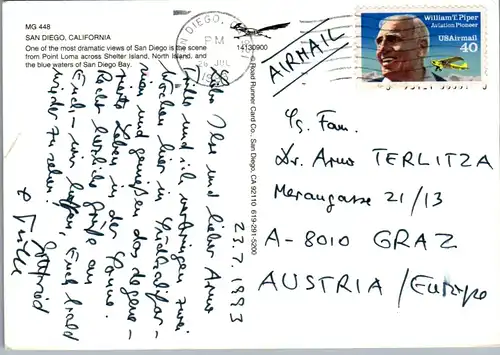 MG 448
SAN DIEGO, CALIFORNIA
One of the most dramatic views of San Diego is the scene
from Point Loma across Shelter Island, North Island, and
the blue waters of San Diego Bay.
14130900
© Road Runner Card Co., San Diego, CA 92110 619-291-5200
SAN DIEGO, CA
PM
JUL
William T. Piper
Aviation Pioneer
USAirmail
40
AIRMAIL
23.7.1993
Liebe Ilse und lieber Arno
Trixi und ich verbringen zwei
Wochen hier in Südkalifor-
nien und genießen das
Leben in der Sonne.
Recht herzliche Grüße an
Euch - wir hoffen, Euch bald
wieder zu sehen!
Gottfried
Fam.
Dr. Arno TERLITZA
Merangasse 21/13
A-8010 GRAZ
AUSTRIA/Europe